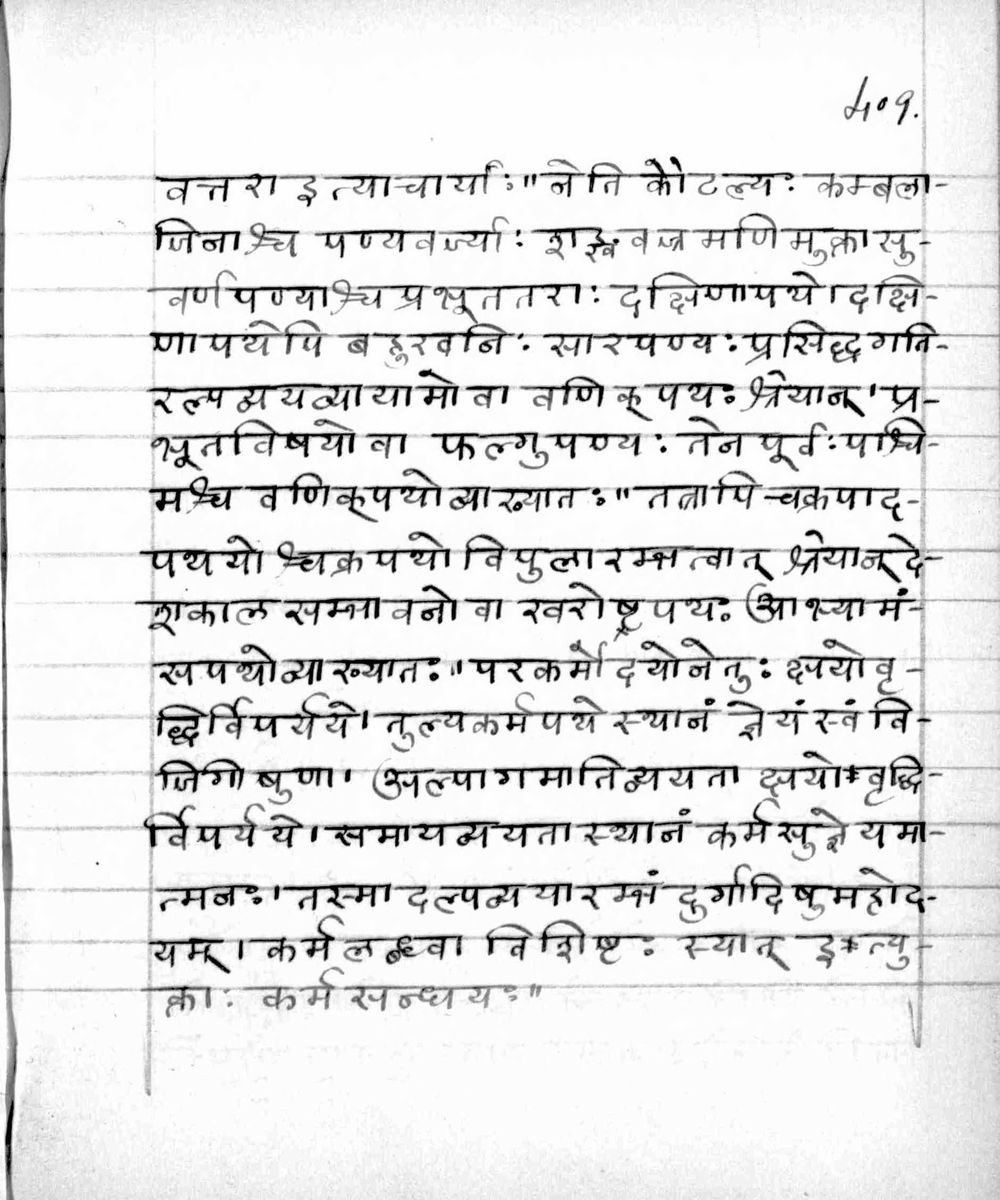 ४०९.
वत्तरा इत्याचार्याः" नेति कौटल्यः कम्बला-
जिनाश्च पण्यवर्ज्याः शङ्खवज्रमणिमुक्तासु-
वर्णपण्याश्च प्रभूततराः दक्षिणापथे। दक्षि-
णापथेपि बहुखनिः सारपण्यः प्रसिद्धगति-
रल्पव्ययव्यायामो वा वणिक्पथः श्रेयान्। प्र-
भूतविषयो वा फल्गुपण्यः तेन पूर्वः पाश्चि-
मश्च वणिक्पथो व्याख्यातः" तत्रापि चक्रपाद-
पथयोश्चक्रपथो विपुलारम्भत्वात् श्रेयान् दे-
शकालसम्भावनो वा खरोष्ट्रपथः आभ्यामं-
सपथो व्याख्यातः" परकर्मोदयो नेतुः क्षयो वृ-
द्धिर्विपर्यये। तुल्यकर्मपथे स्थानं ज्ञेयं स्वं वि-
जिगीषुणा। अल्पागमातिव्ययता क्षयो वृद्धि-
र्विपर्यये। समायव्ययता स्थानं कर्मसु ज्ञेयमा-
त्मनः। तस्मादल्पव्ययारम्भं दुर्गादिषु महोद-
यम्। कर्म लब्ध्वा विशिष्टः स्यात् इत्यु-
क्ताः कर्मसन्धयः"